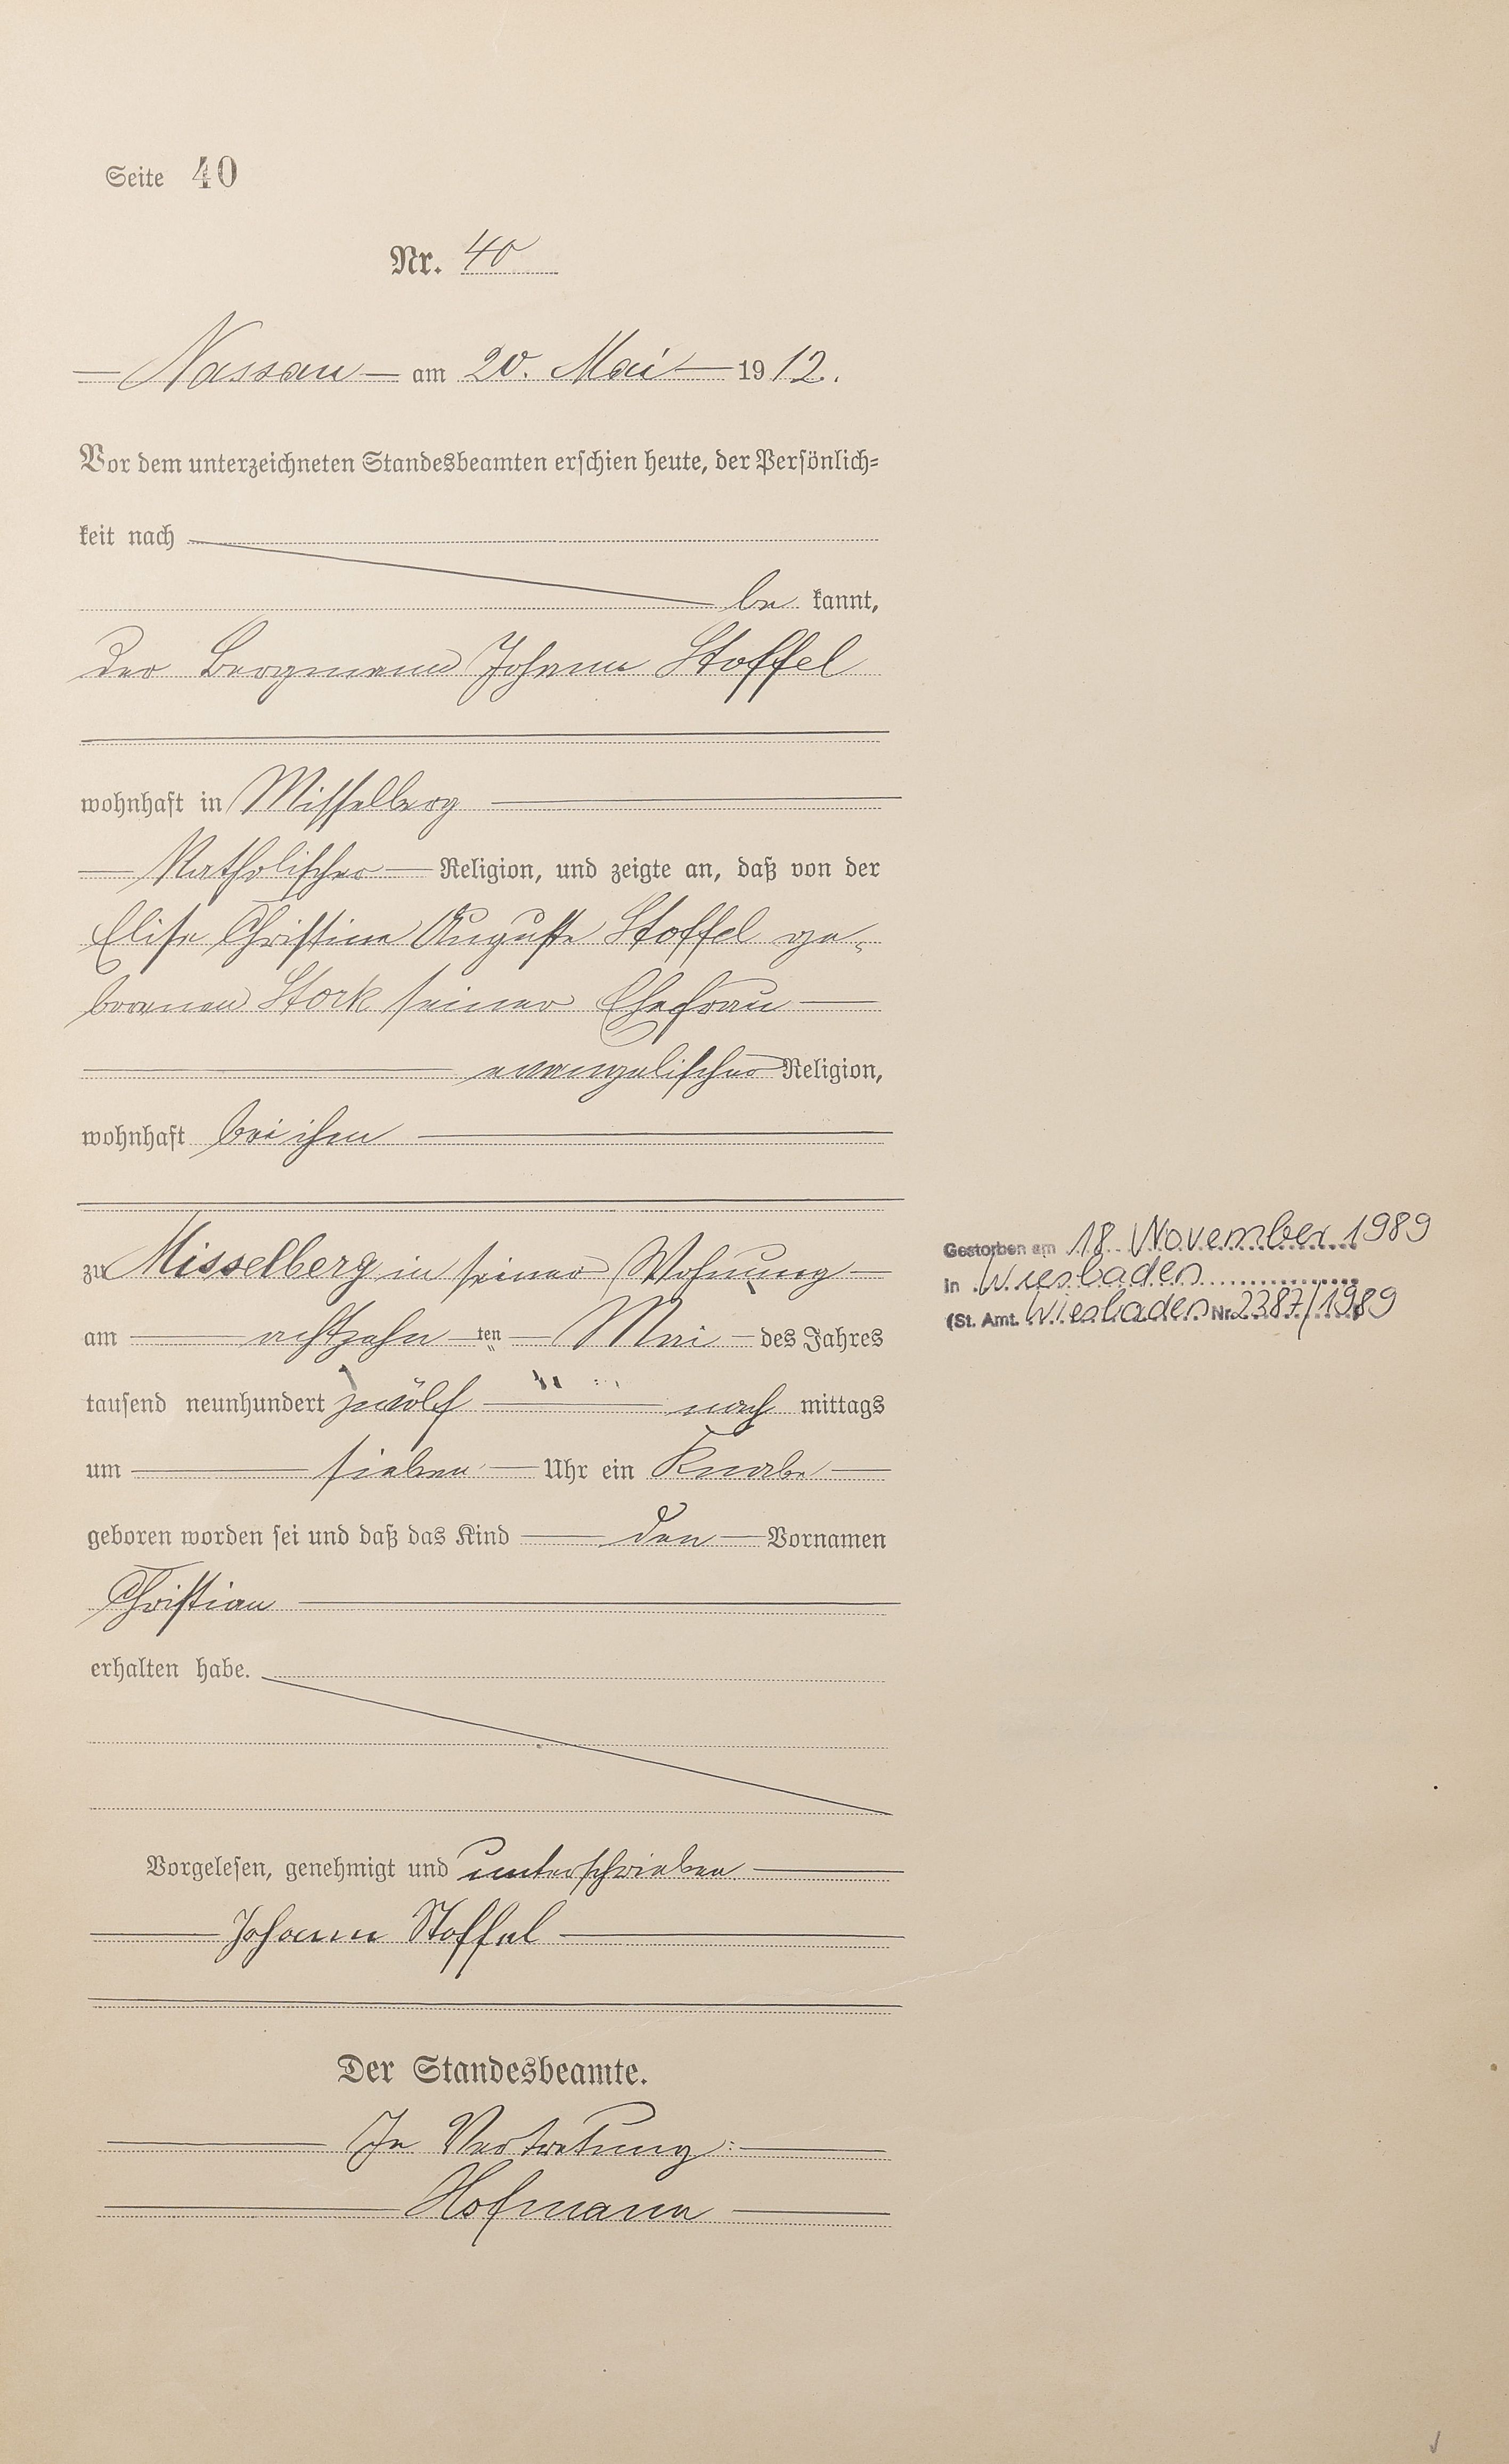 Seite 40
Nr. 40
Nassau am 20. Mai 1912.
Vor dem unterzeichneten Standesbeamten erschien heute, der Persönlich-
keit nach
be kannt,
der Bergmann Johann Stoffel
wohnhaft in Misselberg
Katholischer Religion, und zeigte an, daß von der
Elise Christine Auguste Stoffel ge-
borenen Stork seiner Ehefrau
evangelischer Religion,
wohnhaft bei ihm
zu Misselberg in seiner Wohnung
am achtzehn ten Mai des Jahres
tausend neunhundert zwölf nach mittags
um sieben Uhr ein Knabe
geboren worden sei und daß das Kind den Vornamen
Christian
erhalten habe.
Vorgelesen, genehmigt und unterschrieben.
Johann Stoffel
Der Standesbeamte.
In Vertretung:
Hofmann
Gestorben am 18. November 1989
in Wiesbaden
(St. Amt. Wiesbaden Nr. 2387/1989